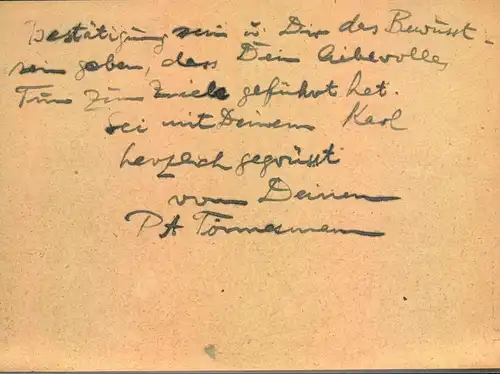 bestätigung sein u. Dir das Bewusst-
sein geben, dass Dein liebevolles
Tun zum Ziele geführt hat.
Sei mit Deinem Karl
herzlich gegrüsst
von Deinem
PA